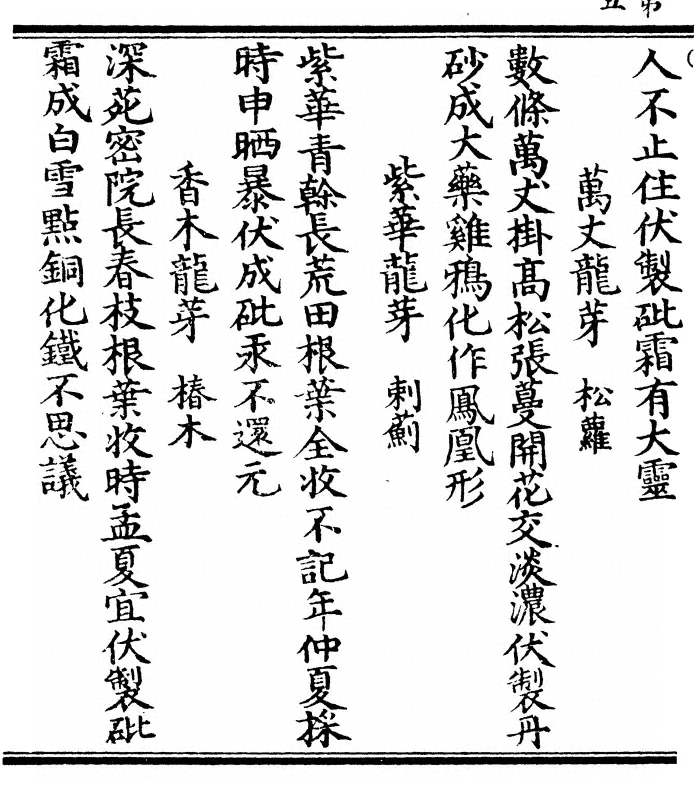 人不止住伏製砒霜有大靈
萬丈龍芽　松蘿
數條萬丈掛髙松張蔓開花交淡濃伏製丹
砂成大藥雞鴉化作鳳凰形
紫華龍芽　刺薊
紫華青榦長荒田根葉全收不記年仲夏採
時申晒暴伏成砒汞不還元
香木龍芽　椿木
深苑密院長春枝根葉收時孟夏宜伏製砒
霜成白雪點銅化鐵不思議